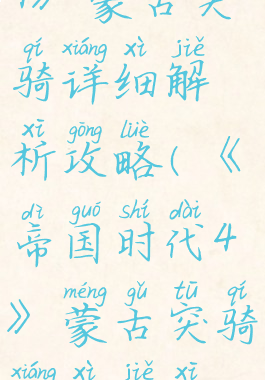 蒙古突
qí xiáng xì jiě
骑详细解
xī gōng lüè
析攻略(《
dì guó shí dài
帝国时代4
méng gǔ tū qí
》蒙古突骑
xiáng xì jiě xī